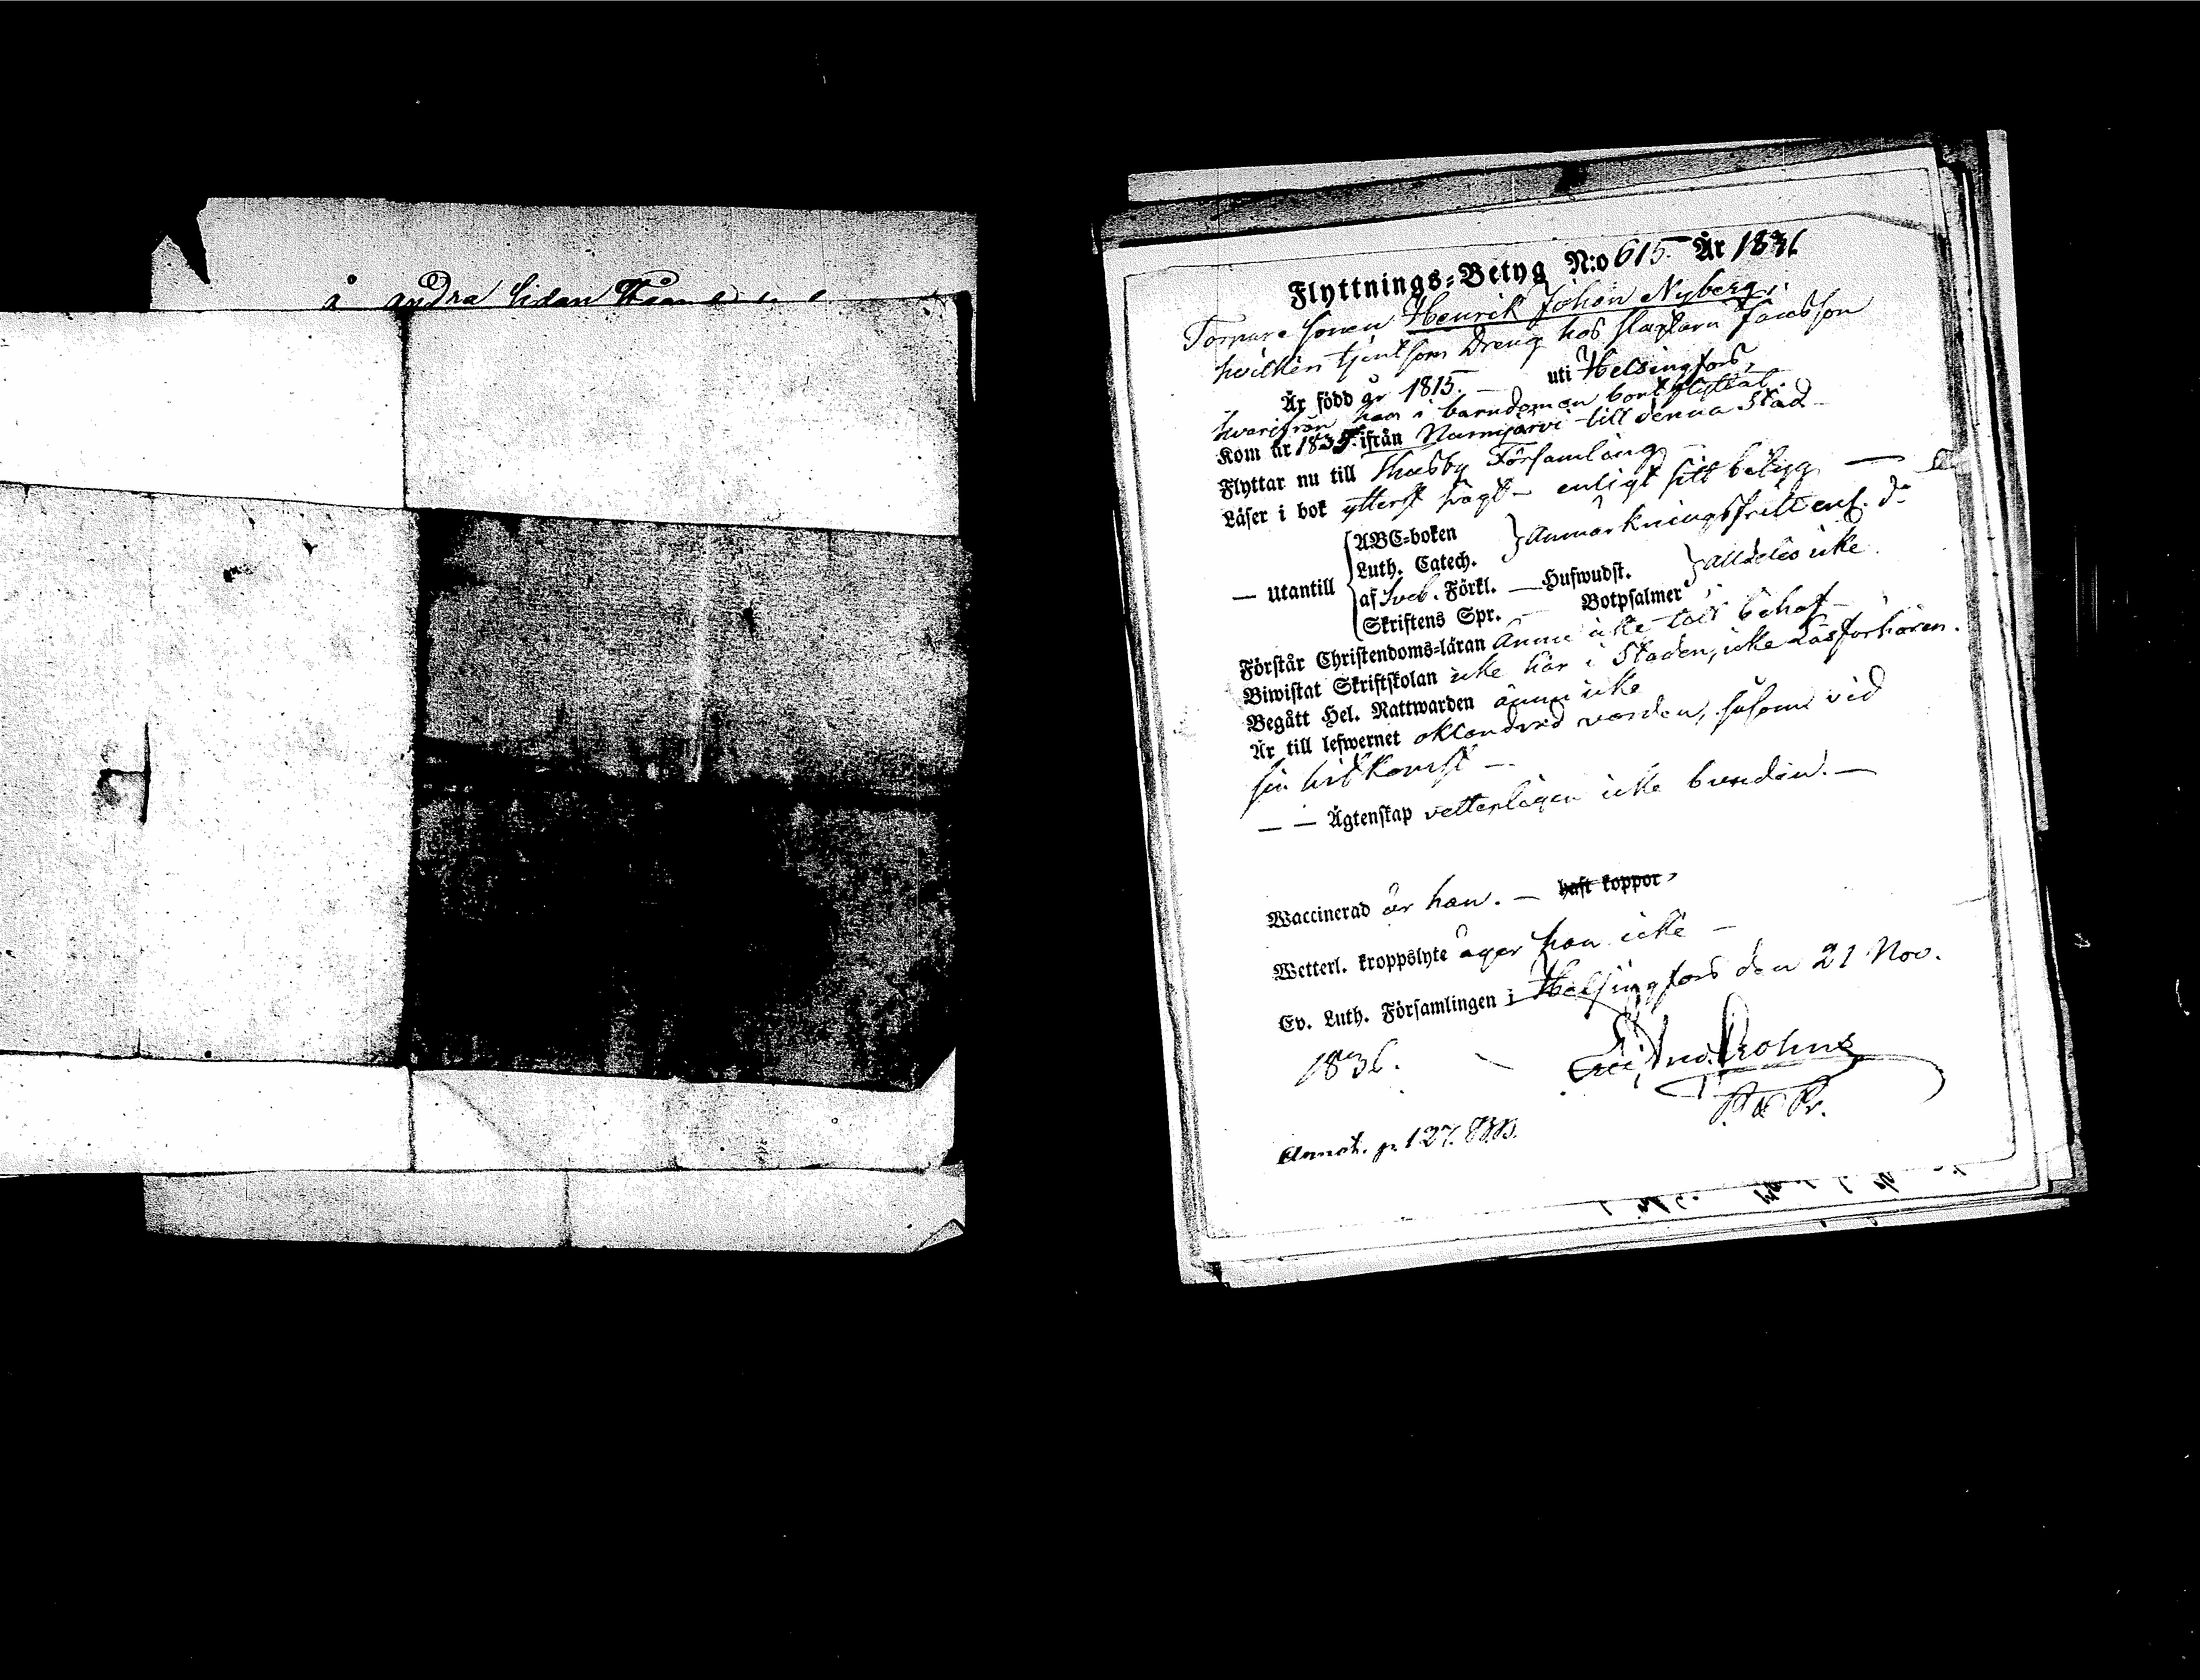 å andra sidan
Flyttnings-Betyg N:o 615. År 1836
Torpare sonen Henrik Johan Nyberg,
hvilken tjent som Dreng hos slagtarn Jacobsson
Är född år 1815. — uti Helsingfors,
hvarifrån han i barndomen bortflyttat.
Kom år 1835. ifrån Nurmijärvi till denna Stad —
Flyttar nu till Thusby Församling
Läser i bok ytterst svagt — enligt sitt betyg —
— Utantill ABC-boken
Luth. Catech. Anmärkningsfritt enl. do
af Sveb. Förkl. — Hufwudst.
Skriftens Spr. — Botpsalmer alldeles icke.
Förstår Christendoms-läran ännu icke till behof —
Biwistat Skriftskolan icke här i Staden, icke Läsförhören.
Begått Hel. Nattwarden ännu icke
Är till lefwernet oklandrad vorden, såsom vid
sin hitkomst —.
— — Ägtenskap vetterligen icke bunden. —
Waccinerad är han. — haft koppor
Wetterl. kroppslyte äger han icke —
Ev. Luth. Församlingen i Helsingfors den 21 Nov.
1836.
Crohns
Annot. p. 127.